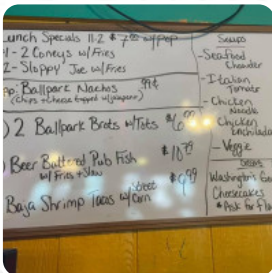 Lunch Specials 11-2 $7.00 w/pop
1- 2 Coneys w/Fries
2- Sloppy Joe w/Fries
Ballpark Nachos 99¢
(Chips + Cheese topped w/Jalapeno)
2 Ballpark Brats w/Tots $6
Beer Battered Pub Fish $10
w/ Fries + Slaw
Baja Shrimp Tacos w/ Street Corn $9.99
Soups
-Seafood
Chowder
-Italian
Tomato
-Chicken
Noodle
Chicken
Enchilada
-Veggie
Washington's
Cheesecakes
*Ask for